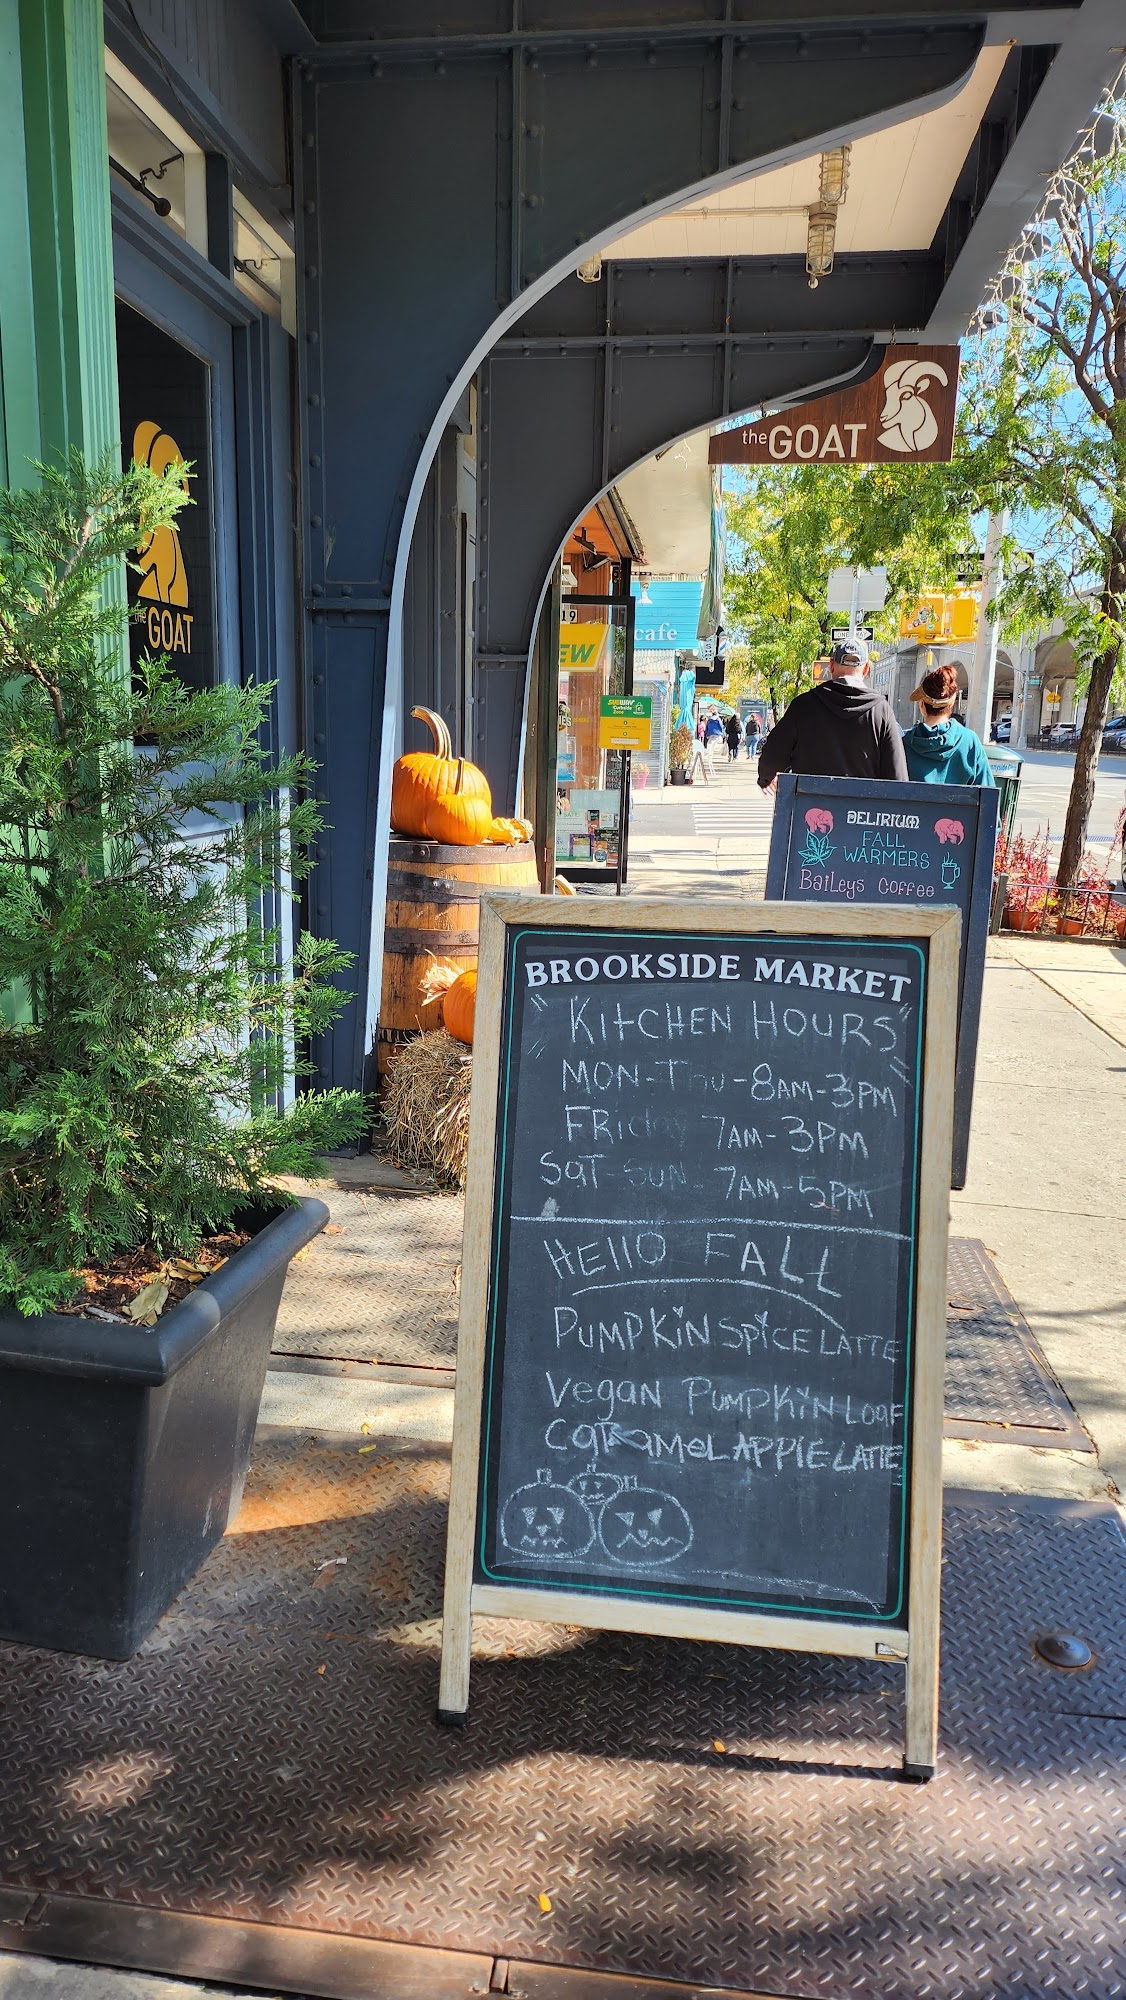 the GOAT
the
GOAT
19
EW
cafe
SUBWAY
Curbside
Zone
DELIRIUM
FALL
WARMERS
BaiLeys Coffee
BROOKSIDE MARKET
"KitCHEN HOURS"
MON-Thu-8AM-3PM
FRiday 7AM-3PM
SaT-SUN 7AM-5PM
HEllO FALL
PUMPKiN SPiCE LATTE
Vegan PUMPKiN LOaF
CaRaMeL APPlE LATTE